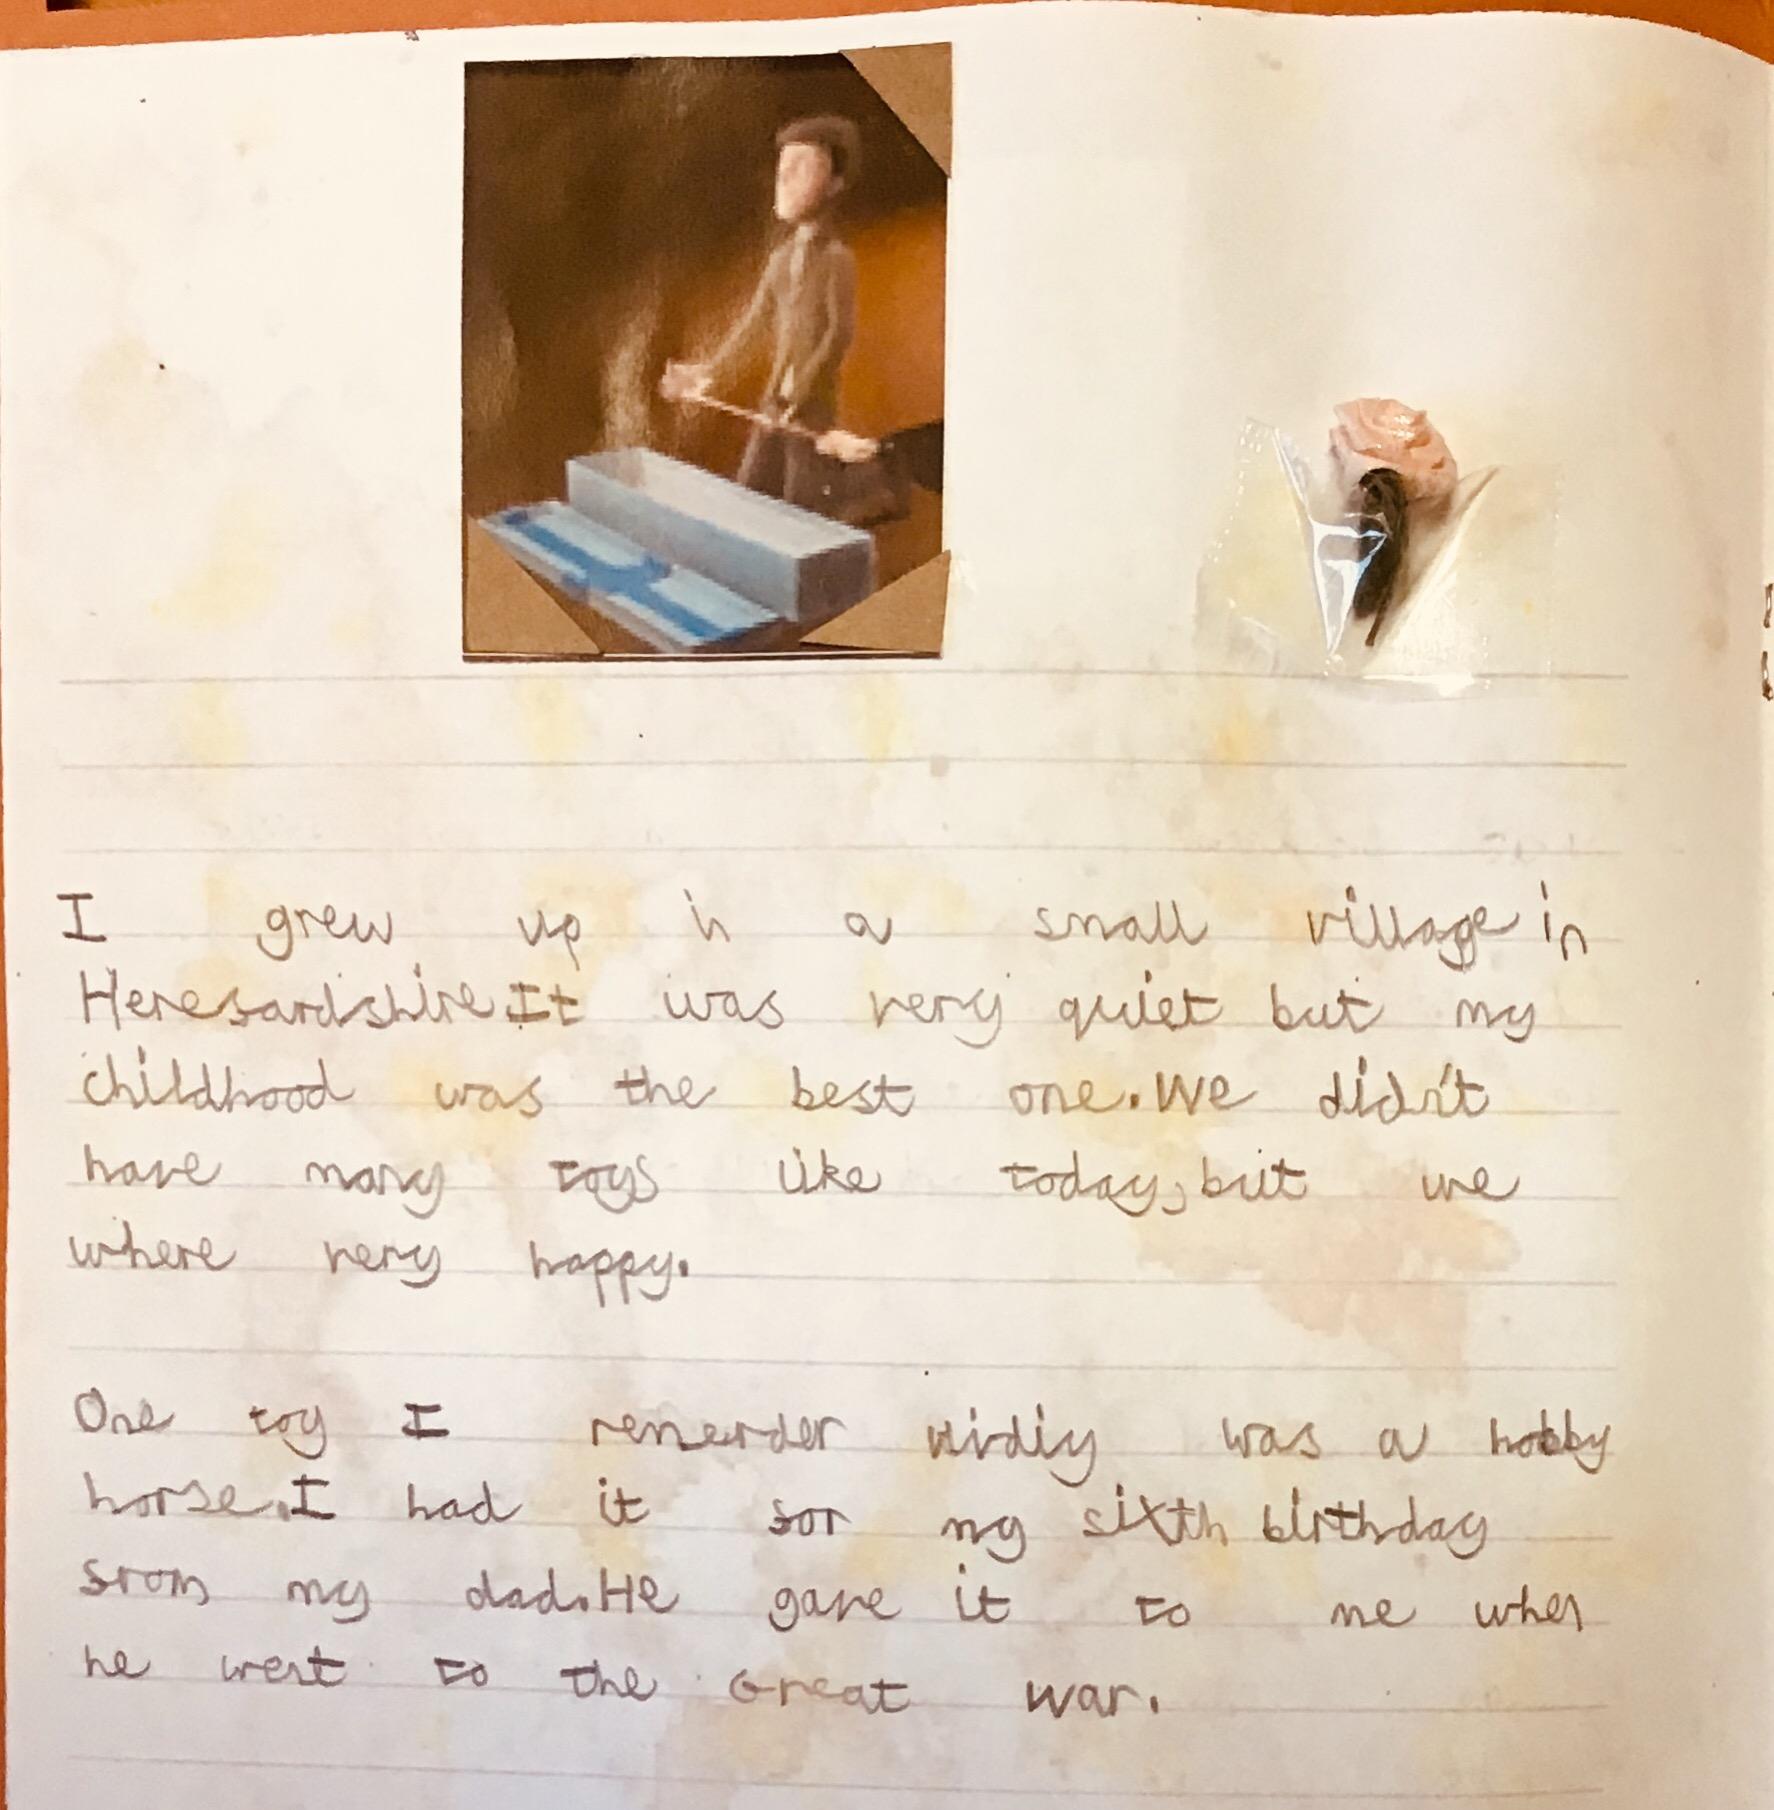 I grew up in a small village in
Herefordshire. It was very quiet but my
childhood was the best one. We didn't
have many toys like today, but we
where very happy.
One toy I remember vividly was a hobby
horse. I had it for my sixth birthday
from my dad. He gave it to me when
he went to the Great war.